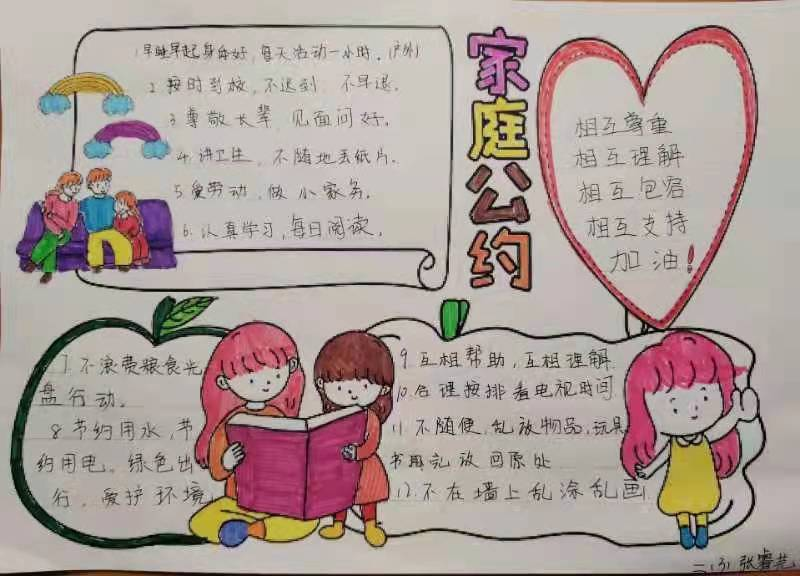 家庭公约
1.早睡早起身体好，每天活动一小时。(户外)
2.按时到校，不迟到，不早退。
3.尊敬长辈，见面问好。
4.讲卫生，不随地丢纸片。
5.爱劳动，做小家务。
6.认真学习，每日阅读。
相互尊重
相互理解
相互包容
相互支持
加油！
7.不浪费粮食光
盘行动。
8.节约用水，节
约用电。绿色出
行，爱护环境
9.互相帮助，互相理解
10.合理按排看电视时间
11.不随便，乱放物品，玩具
书具乱放回原处
12.不在墙上乱涂乱画
二(3)张睿芫